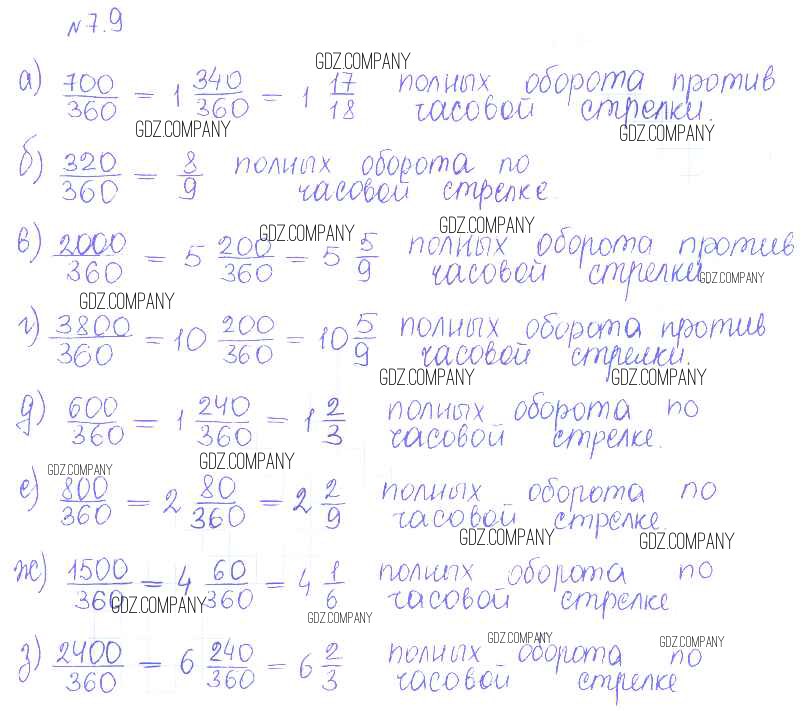 №7.9
GDZ.COMPANY
а) 700/360 = 1 340/360 = 1 17/18 полных оборота против
часовой стрелки.
GDZ.COMPANY GDZ.COMPANY
б) 320/360 = 8/9 полных оборота по
часовой стрелке.
GDZ.COMPANY GDZ.COMPANY
в) 2000/360 = 5 200/360 = 5 5/9 полных оборота против
часовой стрелки
GDZ.COMPANY
GDZ.COMPANY
г) 3800/360 = 10 200/360 = 10 5/9 полных оборота против
часовой стрелки.
GDZ.COMPANY GDZ.COMPANY
д) 600/360 = 1 240/360 = 1 2/3 полных оборота по
часовой стрелке.
GDZ.COMPANY GDZ.COMPANY
е) 800/360 = 2 80/360 = 2 2/9 полных оборота по
часовой стрелке.
GDZ.COMPANY GDZ.COMPANY
ж) 1500/360 = 4 60/360 = 4 1/6 полных оборота по
часовой стрелке
GDZ.COMPANY GDZ.COMPANY
GDZ.COMPANY GDZ.COMPANY
з) 2400/360 = 6 240/360 = 6 2/3 полных оборота по
часовой стрелке